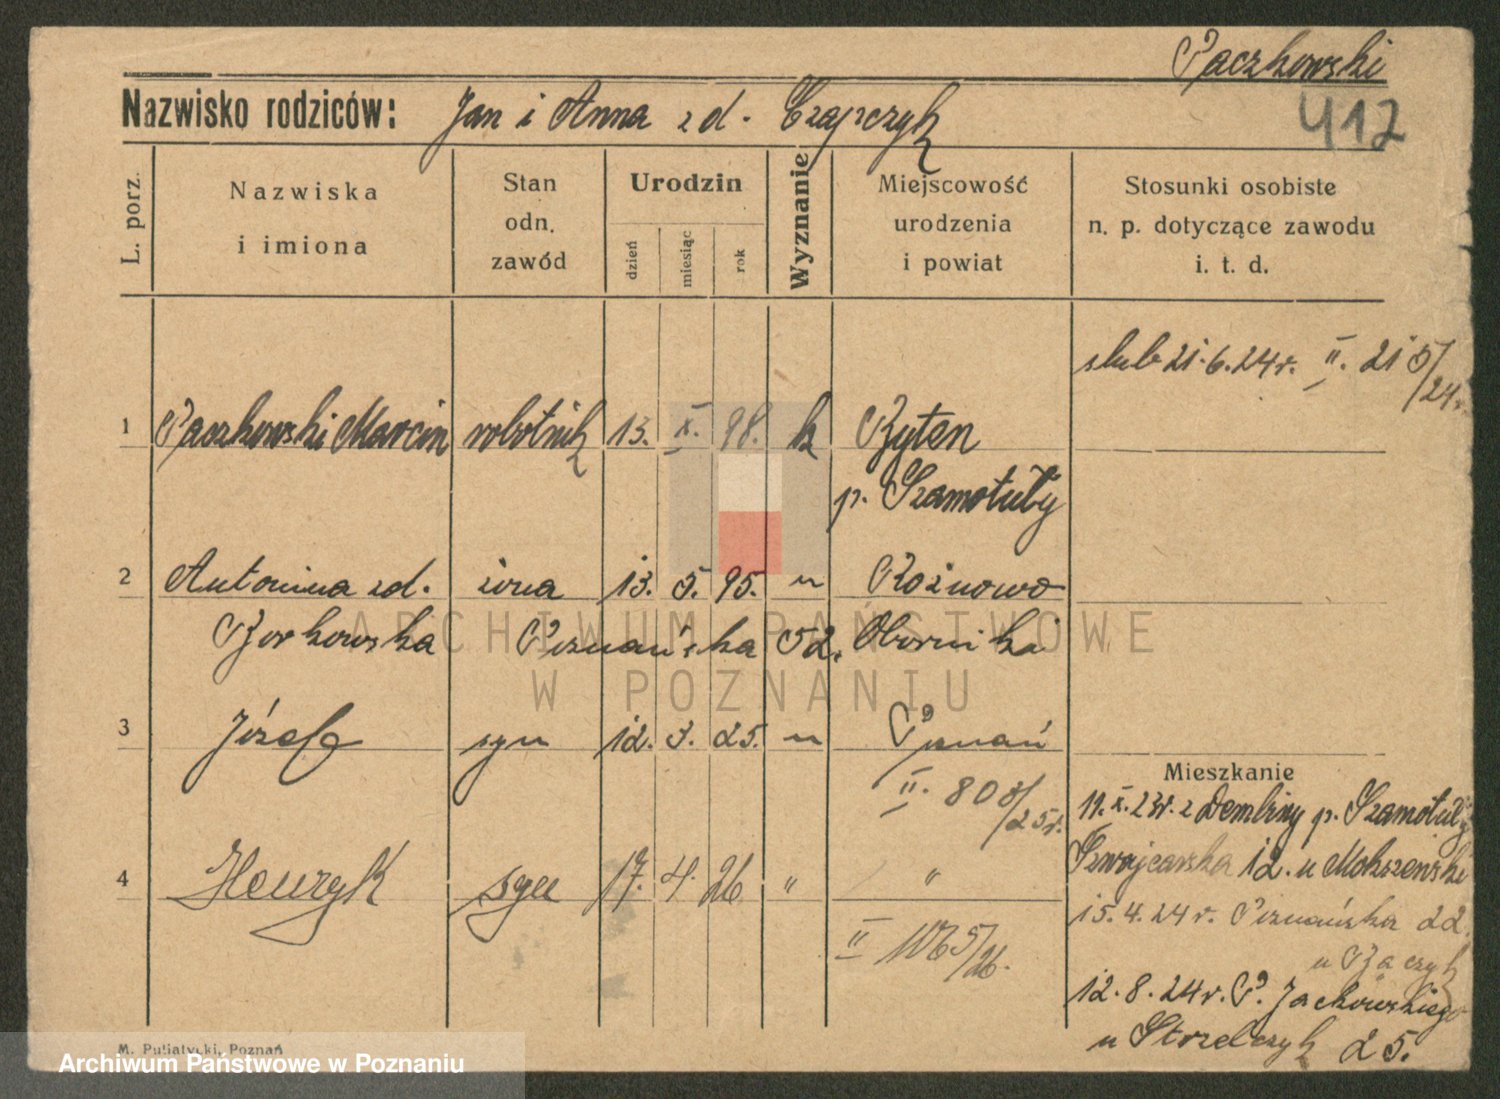 Paczkowski
417
Nazwisko rodziców: Jan i Anna z d. Czapczyk
L. porz.
Nazwiska i imiona
Stan odn. zawód
Urodzin
dzień
miesiąc
rok
Wyznanie
Miejscowość urodzenia i powiat
Stosunki osobiste n. p. dotyczące zawodu i. t. d.
slub 21.6.24r. II. 215/24.
1 Paczkowski Marcin robotnik 13. X. 98. k Byten
p. Szamotuły
2 Antonina zd. żona 13. 5. 95. " Rożnowo
Borkowska Poznańska 52. Oborniki
3 Józef syn 12. 3. 25. " Poznań
II. 808/25r.
4 Henryk syn 17. 4. 26 " "
II 1065/26.
Mieszkanie
19. X. 23r. z Dembiny p. Szamotuły
Szwajcarska 12. u Mokszewski
15.4.24r. Poznańska 22.
u Bączyk
12.8.24r. P. Jackowskiego
u Strzelczyk 25.
M. Putiatycki, Poznań
ARCHIWUM PAŃSTWOWE
W POZNANIU
Archiwum Państwowe w Poznaniu